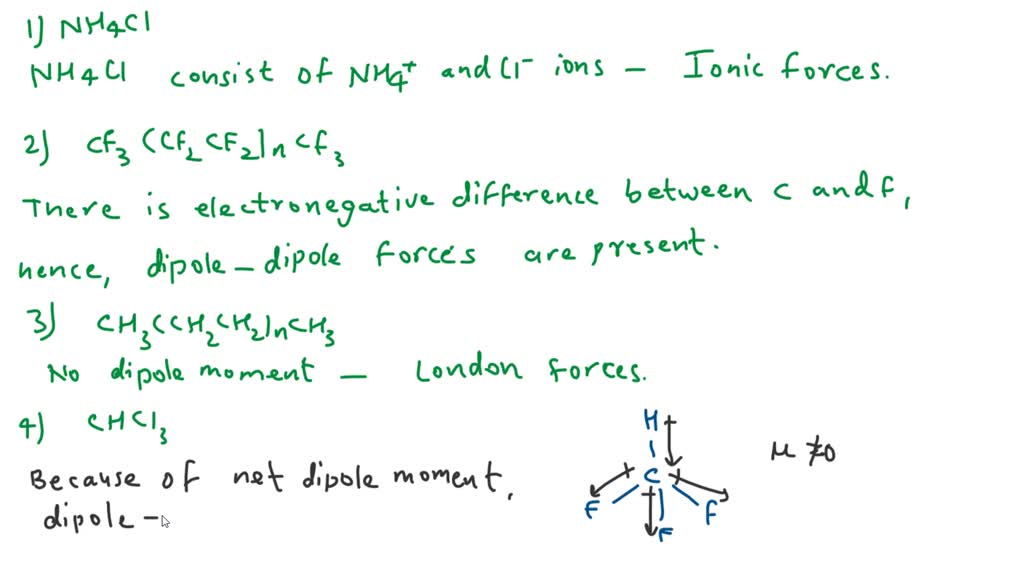 1) NH4Cl
NH4Cl consist of NH4+ and Cl- ions - Ionic forces.
2) CF3 (CF2 CF2]n CF3
There is electronegative difference between C and F,
hence, dipole - dipole forces are present.
3) CH3(CH2CH2]nCH3
No dipole moment - London forces.
4) CHCl3
Because of net dipole moment,
dipole -
H
C
F F F
μ ≠0